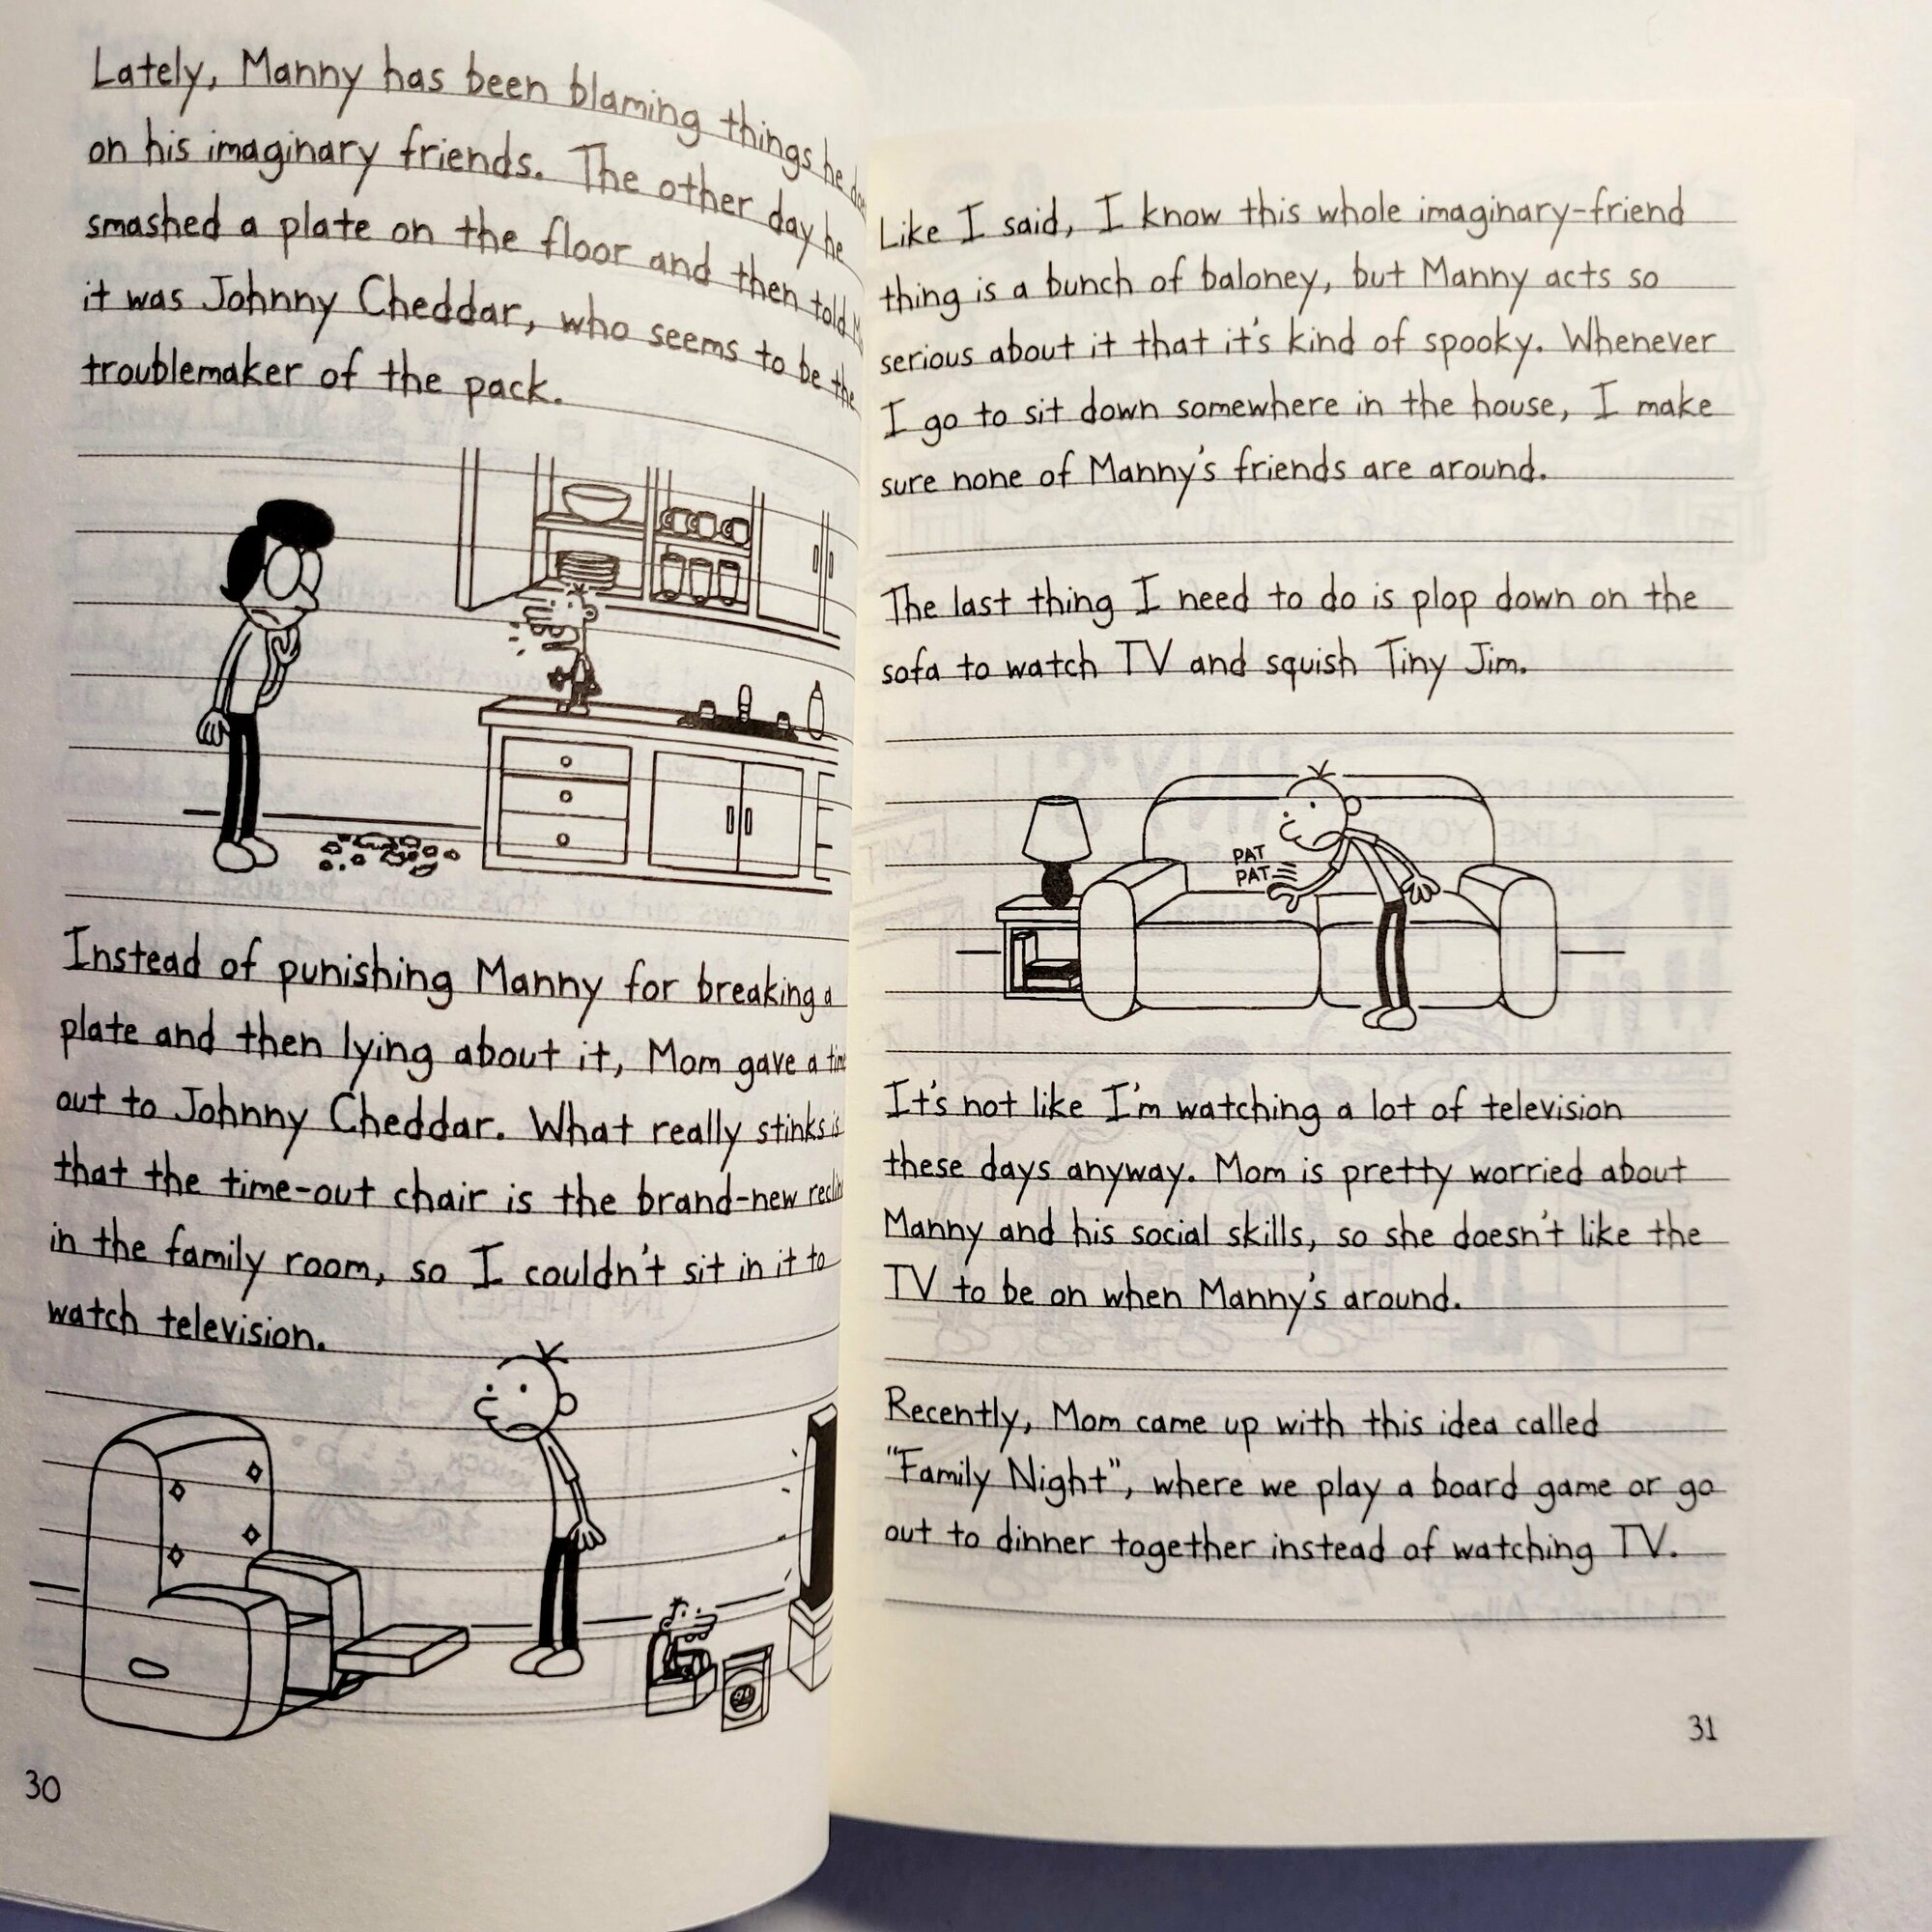 Lately, Manny has been blaming things he
on his imaginary friends. The other day he
smashed a plate on the floor and then told
it was Johnny Cheddar, who seems to be the
troublemaker of the pack.
Instead of punishing Manny for breaking a
plate and then lying about it, Mom gave a
out to Johnny Cheddar. What really stinks is
that the time-out chair is the brand-new
in the family room, so I couldn't sit in it to
watch television.
30
Like I said, I know this whole imaginary-friend
thing is a bunch of baloney, but Manny acts so
serious about it that it's kind of spooky. Whenever
I go to sit down somewhere in the house, I make
sure none of Manny's friends are around.
The last thing I need to do is plop down on the
sofa to watch TV and squish Tiny Jim.
PAT
PAT
It's not like I'm watching a lot of television
these days anyway. Mom is pretty worried about
Manny and his social skills, so she doesn't like the
TV to be on when Manny's around.
Recently, Mom came up with this idea called
"Family Night", where we play a board game or go
out to dinner together instead of watching TV.
31